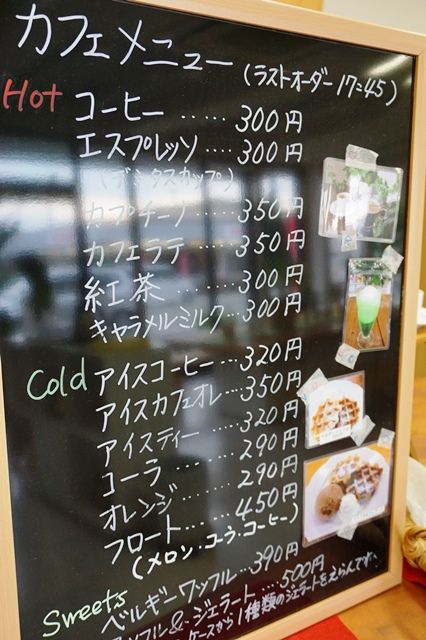 カフェメニュー (ラストオーダー 17:45)
Hot コーヒー……300円
エスプレッソ……300円
(デミタスカップ)
カプチーノ……350円
カフェラテ……350円
紅茶……300円
キャラメルミルク…300円
Cold アイスコーヒー…320円
アイスカフェオレ…350円
アイスティー……320円
コーラ……290円
オレンジ……290円
フロート……450円
(メロン・コーラ・コーヒー)
Sweets ベルギーワッフル…390円
ワッフル&ジェラート……500円
ケースから1種類のジェラートをえらんで